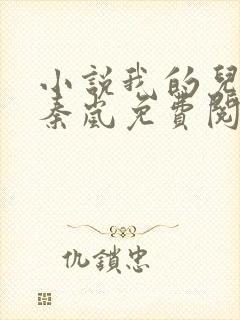 小説我的兒
秦嵐免費閱
仇鎖忠